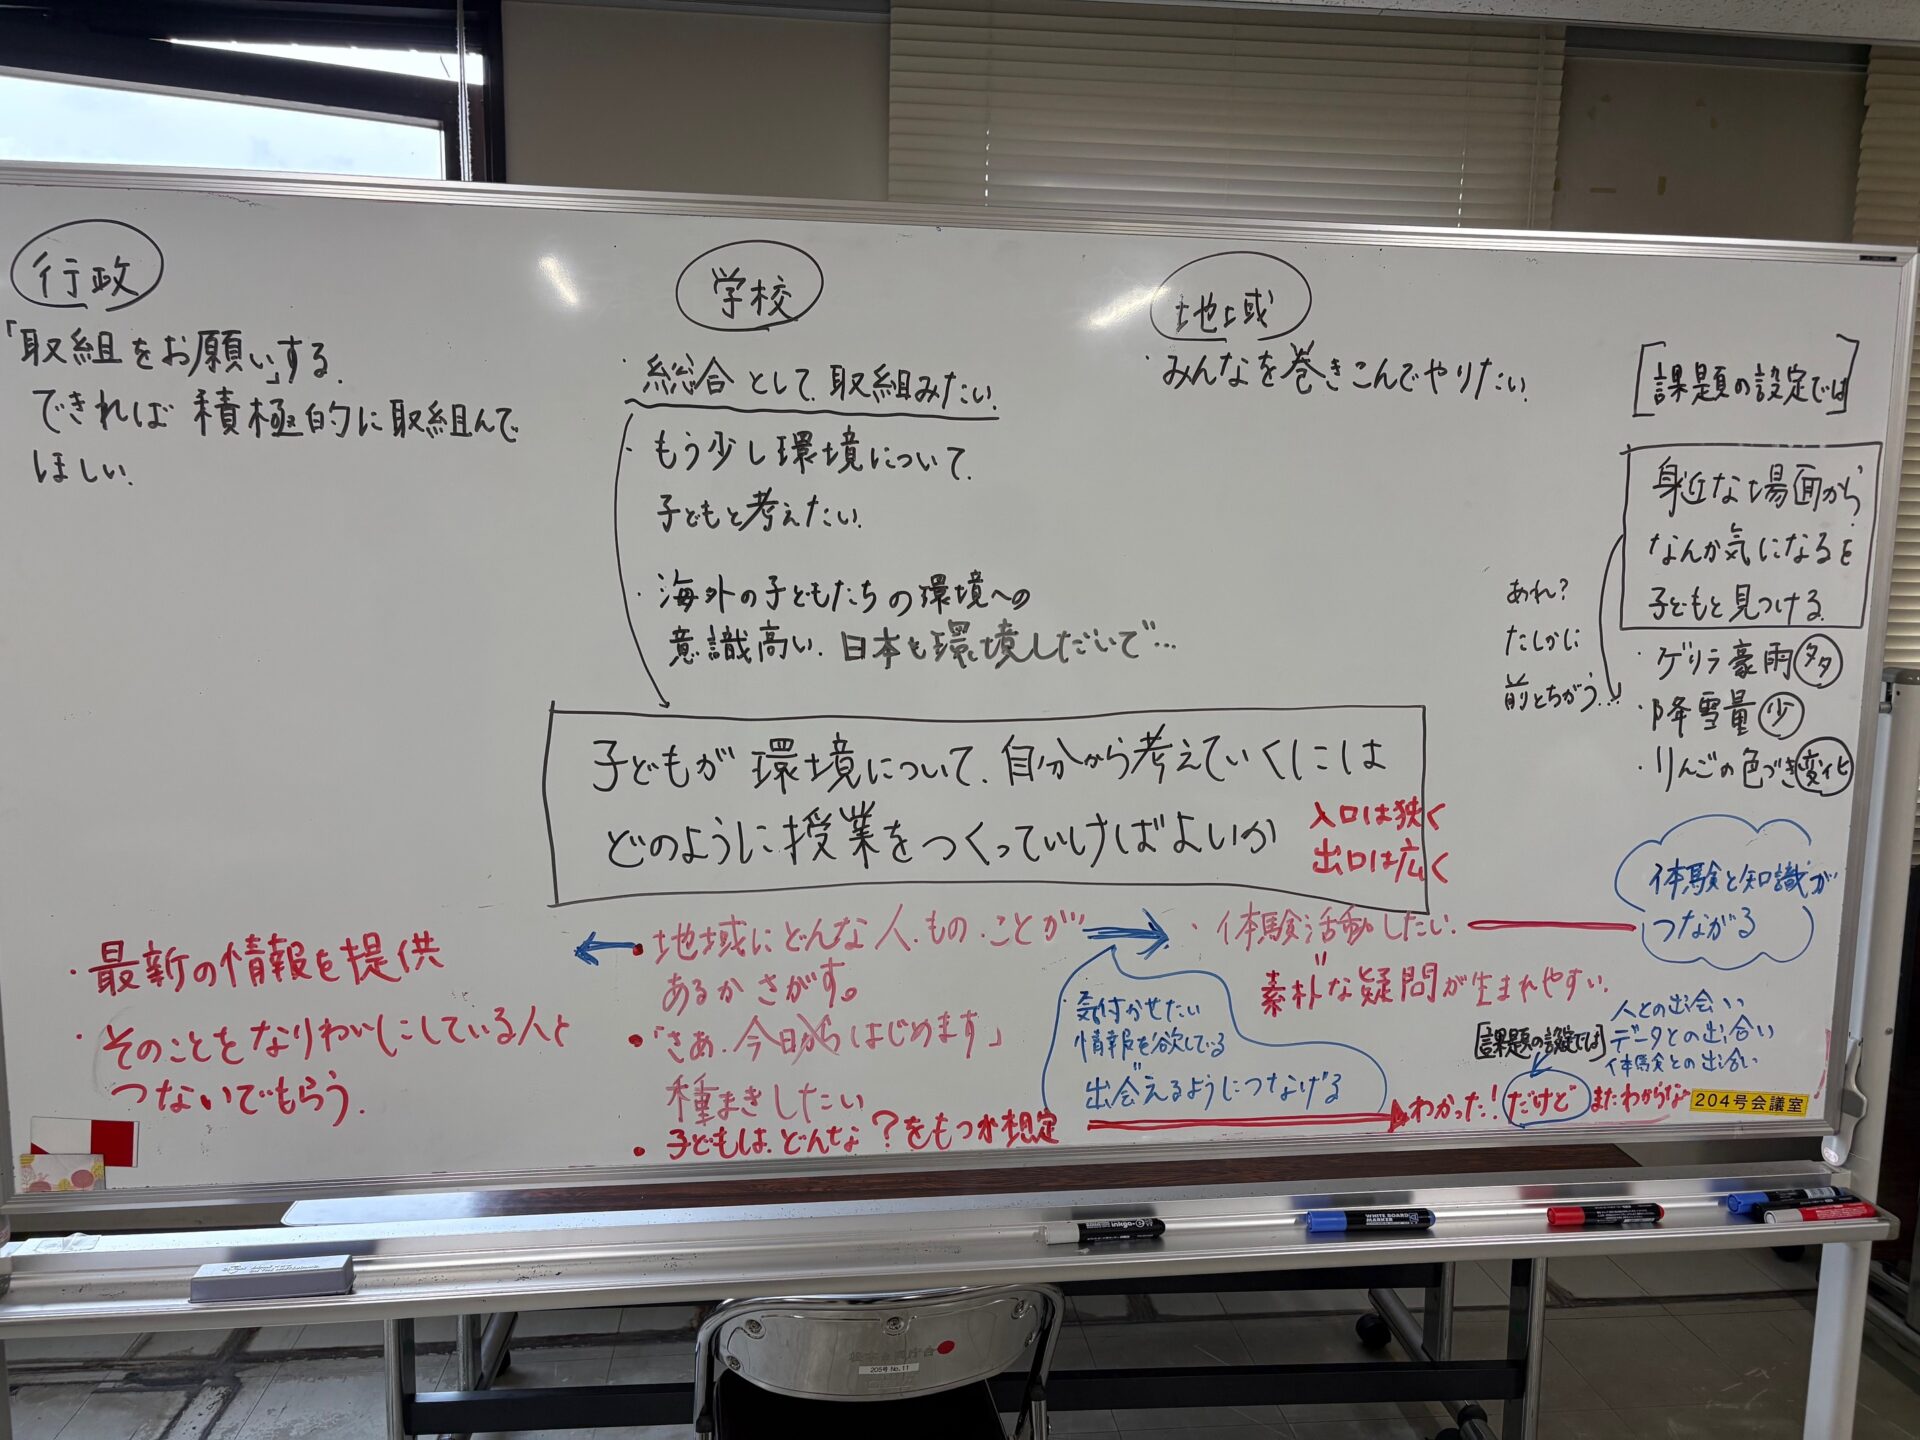 行政
「取組をお願い」する.
できれば 積極的に取組んで
ほしい.
学校
・総合として取組みたい.
・もう少し環境について.
子どもと考えたい.
・海外の子どもたちの環境への
意識高い. 日本も環境しだいで…
地域
・みんなを巻きこんでやりたい.
[課題の設定では]
身近な場面から
なんか気になるを
子どもと見つける.
あれ?
たしかに
前とちがう…
・ゲリラ豪雨 多
・降雪量 少
・りんごの色づき 変化
子どもが環境について.自分から考えていくには
どのように授業をつくっていけばよいか
入口は狭く
出口は広く
・最新の情報を提供
・そのことをなりわいにしている人と
つないでもらう.
・地域にどんな人.もの.ことが
あるか さがす。
・「さあ.今日からはじめます」
種まきしたい
・子どもは.どんな?をもつか想定
・気付かせたい
情報を欲している
出会えるようにつなげる
・体験活動したい.
素朴な疑問が生まれやすい.
体験と知識が
つながる
人との出会い
[課題の設定では] データとの出会い
体験との出会い
わかった! だけど またわからな
204号会議室
WHITE BOARD
MARKER
205号 No.11